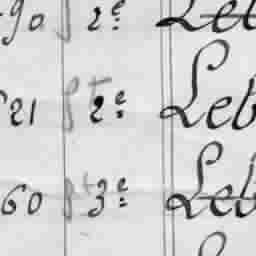 90 2e Leb
21 2e Leb
60 3e Leb